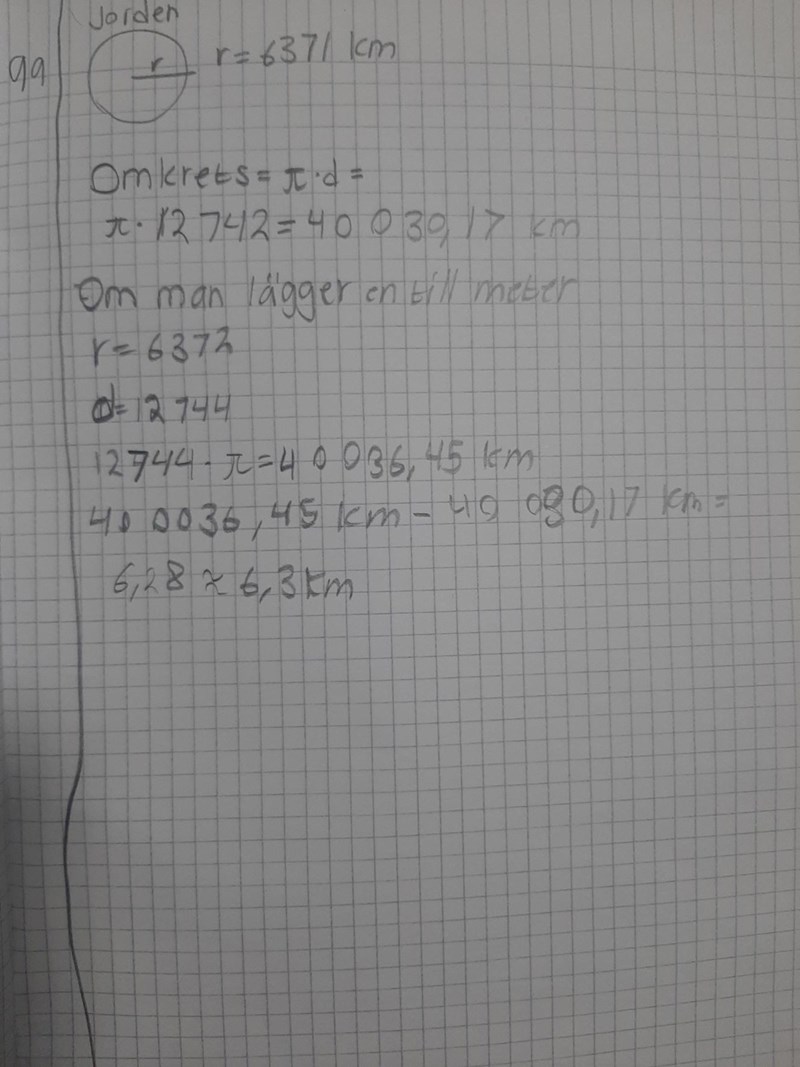 Jorden
99 r r = 6371 km
Omkrets = π · d =
π · 12 742 = 40 030,17 km
Om man lägger en till meter
r = 6372
d = 12 744
12744 · π = 40 036,45 km
40 0036,45 km - 40 030,17 km =
6,28 ≈ 6,3 km